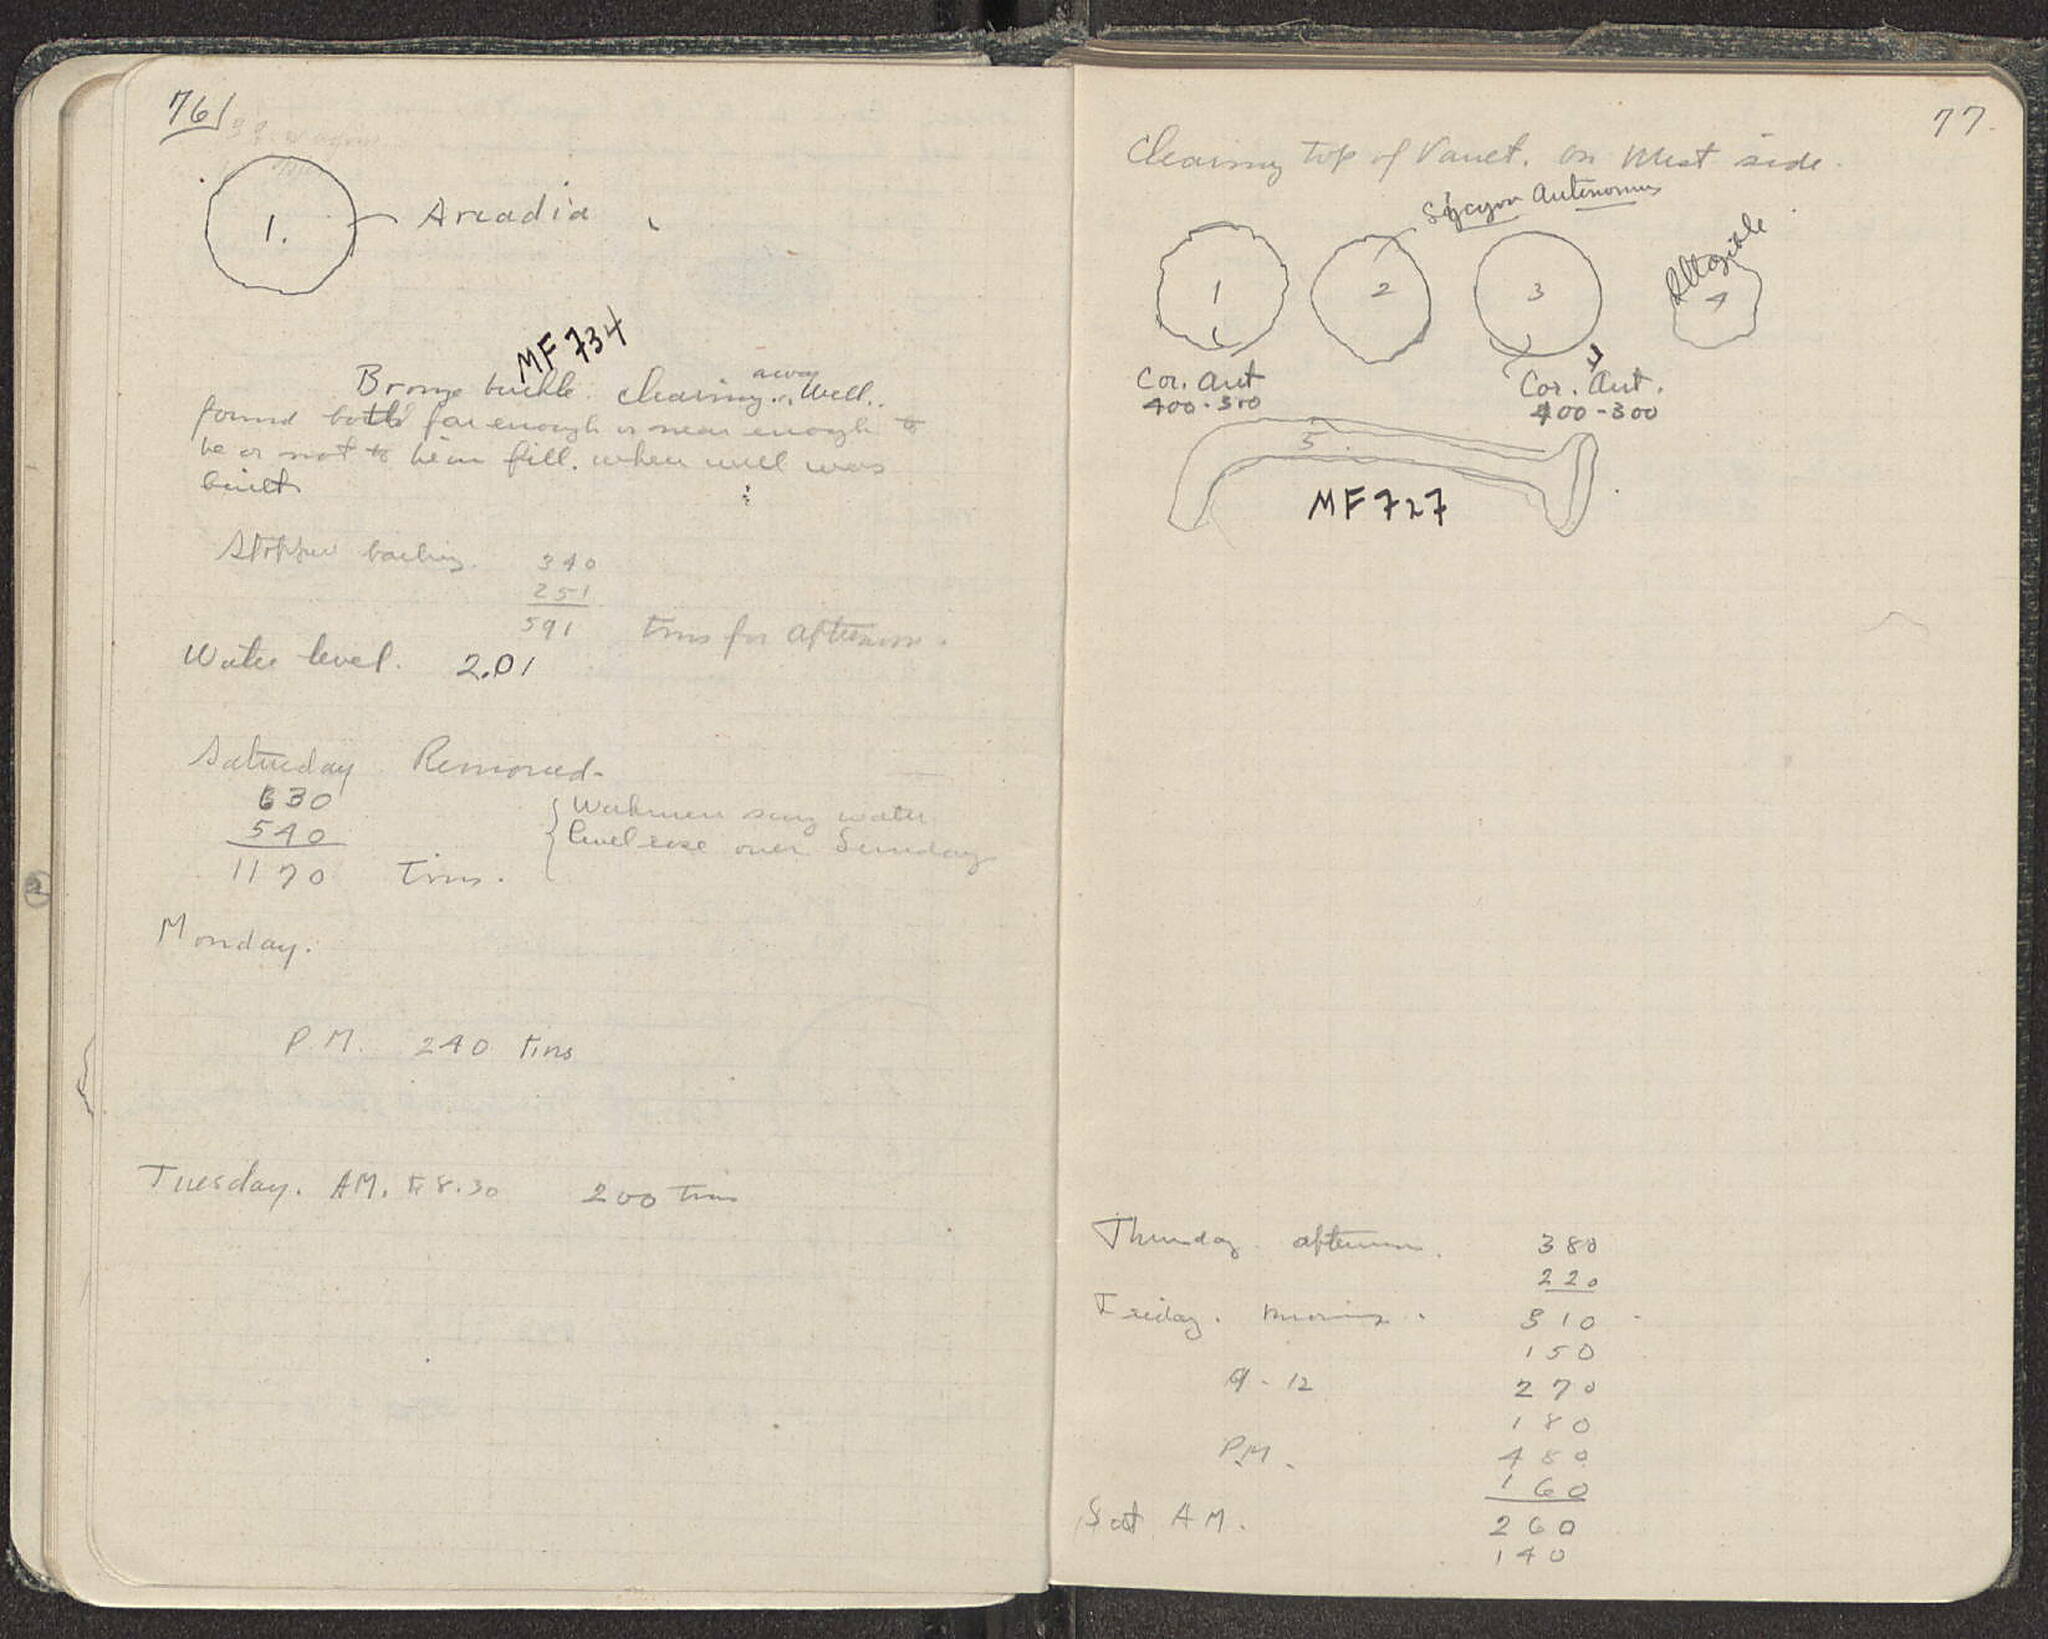 76
1.
Arcadia
MF 734
Bronze buckle. Clearing away Well.
found both far enough or near enough to
be or not to be in fill. when well was
built
Stopped bailing. 340
251
591 tins for afternoon.
Water level. 2.01
Saturday Removed-
630
540
1170 Tins.
Workmen say water
level rose over Sunday
Monday.
P.M. 240 tins
Tuesday. AM. to 8.30 200 tins
77.
Clearing top of Vault. on West side.
Sicyon Autonomus
1
2
3
Illegible
4
Cor. Aut
400-300
Cor. Aut.
400-300
5.
MF 727
Thursday afternoon. 380
220
Friday. morning. 310
150
9-12 270
180
P.M. 480
160
Sat AM. 260
140